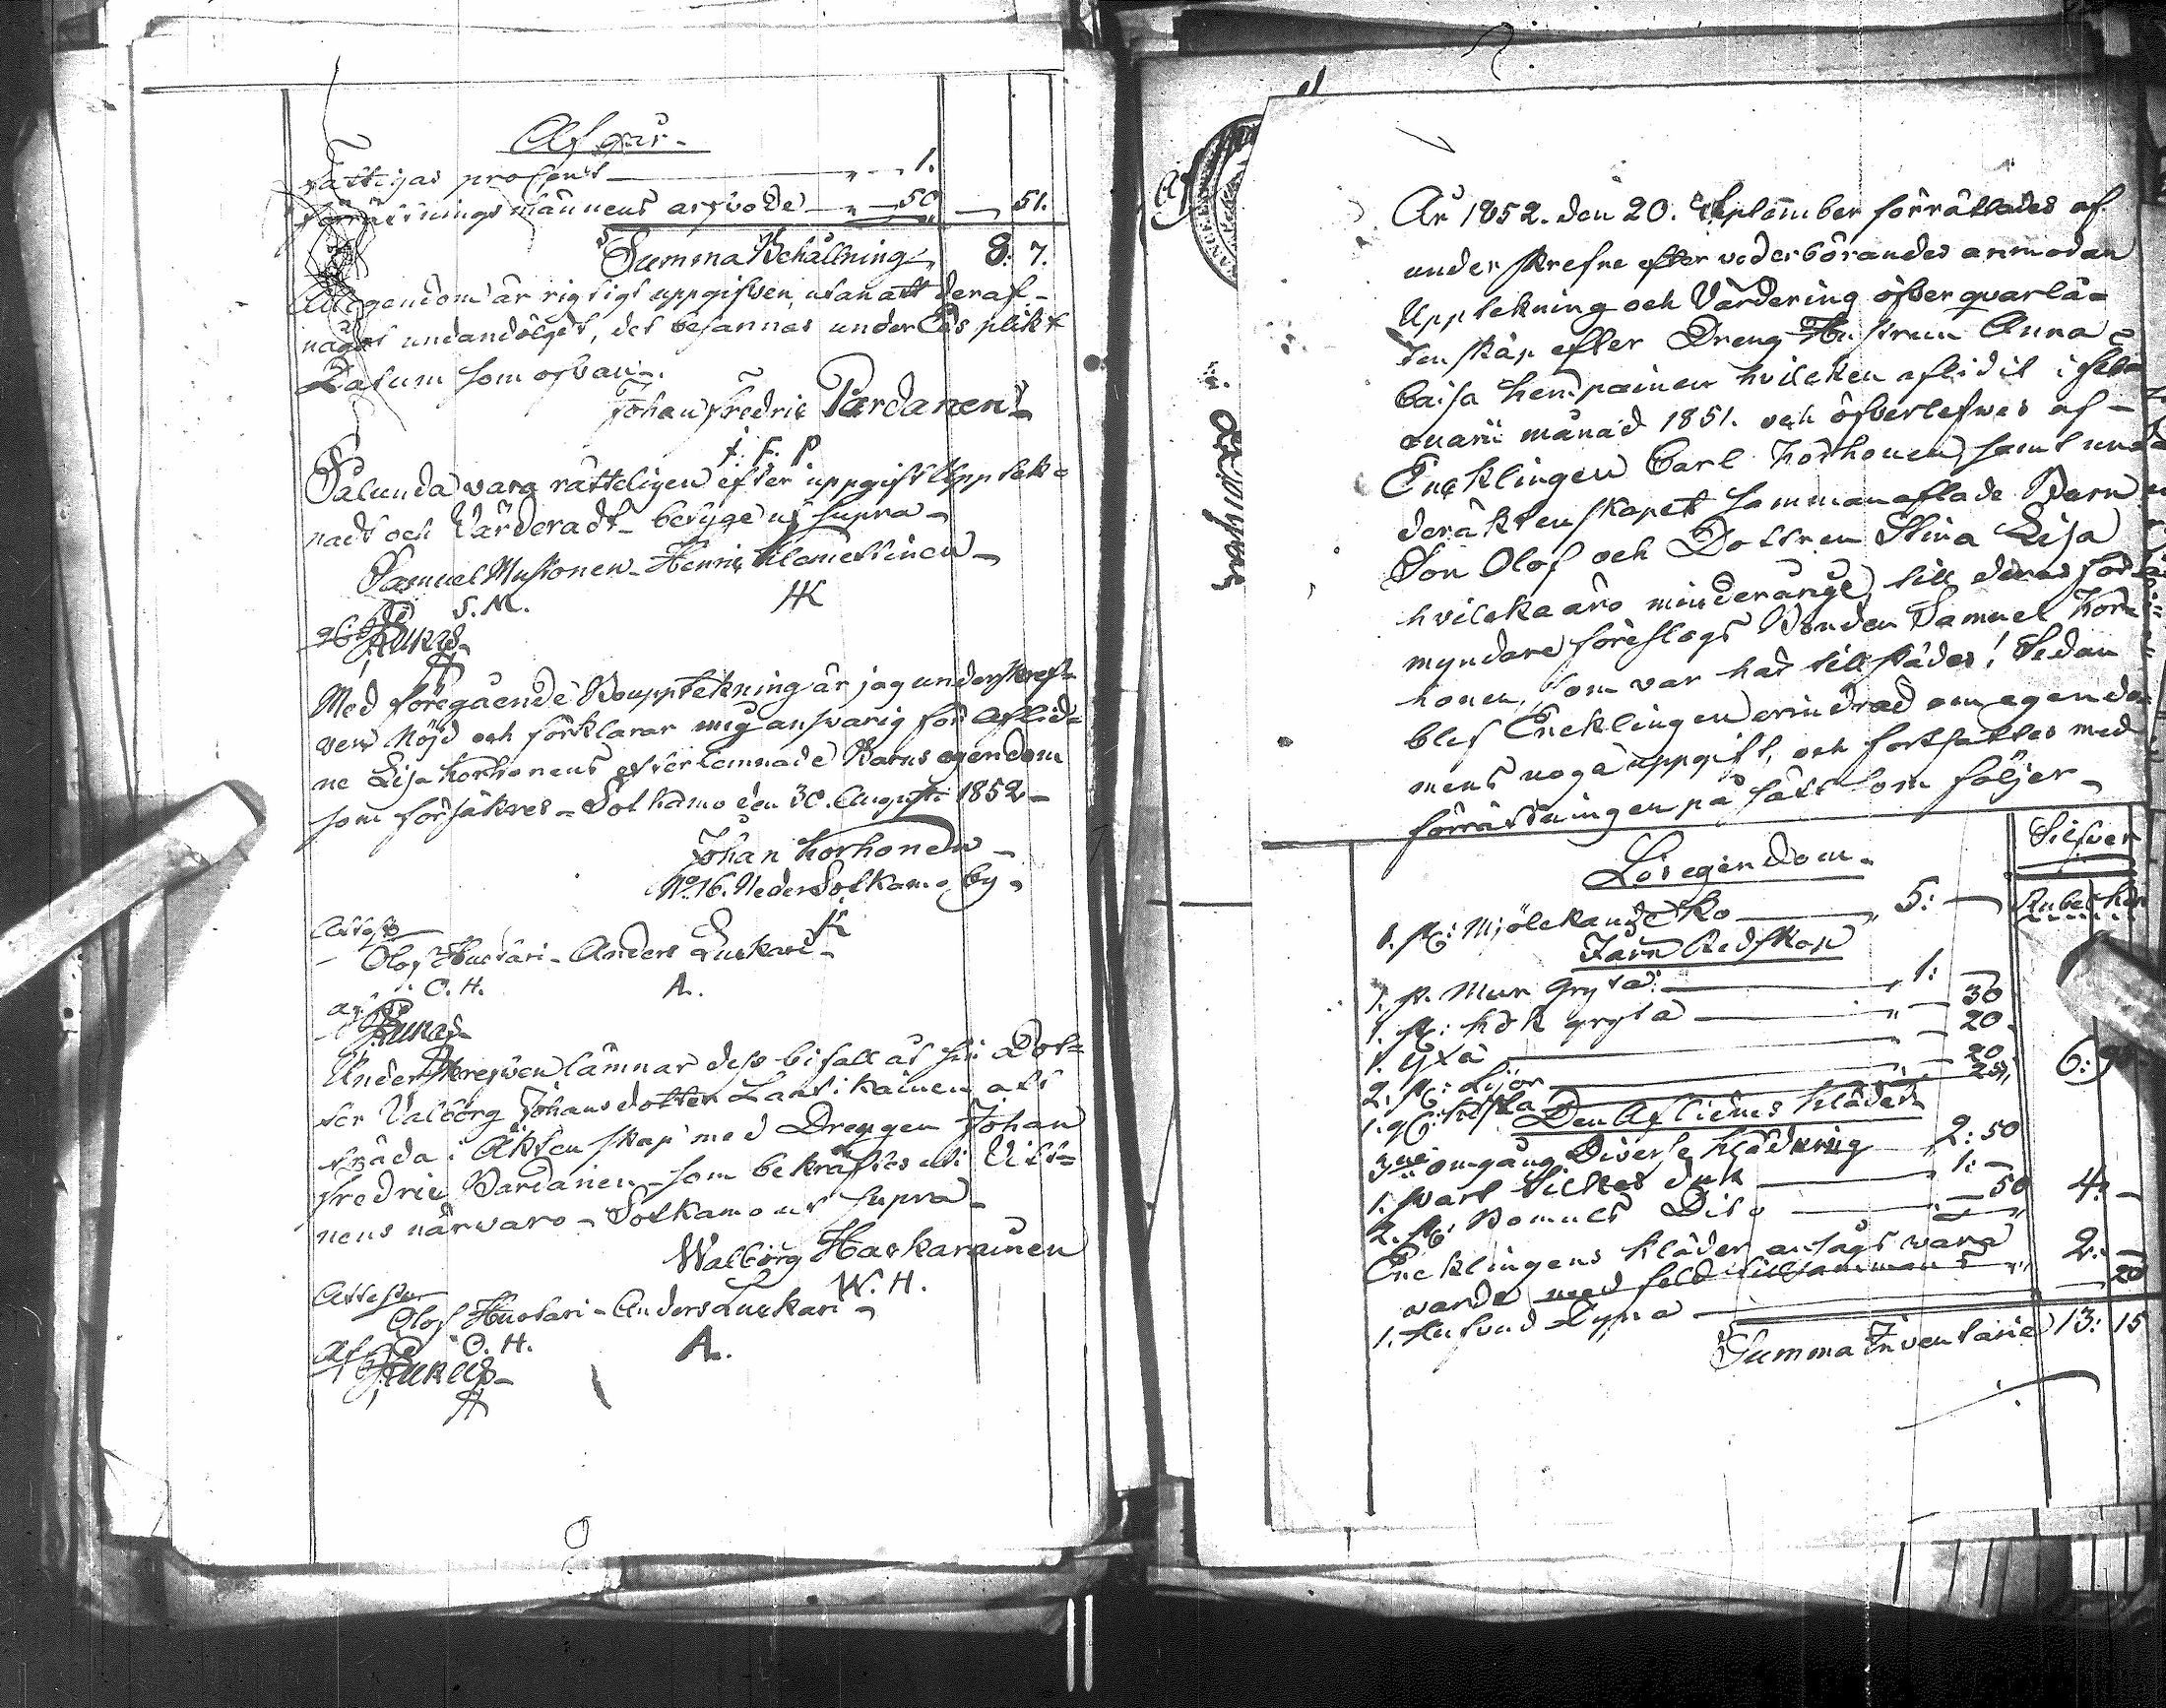 Af går.
Fattigas procent — „ — 1.
förrättningsmännens arfvode — „ — 50 — 51.
Summa Behållning 8: 7.
All egendom är rigtigt uppgifven, utan att deraf
något undandölgdt, det besannas under Eds plikt
Datum som ofvan.
Johan Fredric Pardanen
J. F. P
Sålunda vara rätteligen efter uppgift Upptek=
nadt och Värderadt betyge ut supra
Samuel Mustonen Henric Klemettinen
S. M. HK
Med föregående Boupptekning är jag underskref=
ven Nöjd och förklarar mig ansvarig för Aflid=
ne Lisa Korhonens efterlemnade Barns egendom
som försäkres Sotkamo den 30. Augusti 1852
Johan Korhonen
No 16. Neder Sotkamo by
Attest
Olof Huotari Anders Luukari
O. H. A.
Underskrefven lämnar dess bifall åt sin Dot=
ter Valborg Johansdotter Lantikainen att
träda i Äktenskap med Drengen Johan
Fredric Pardanen som bekräftas uti Vitt=
nens närvaro Sotkamo ut supra
Walborg Haskarainen
W. H.
Attester
Olof Huotari Anders Luukari
O. H. A.
År 1852. den 20. September förrättades af
underskrefne efter vederbörandes anmodan
Upptekning och Värdering öfver qvarlå=
tenskap efter Dreng Hustrun Anna
Caisa hvilcken aflidit i feb
ruarii månad 1851. och öfverlefves af
Encklingen Carl Korhonen samt und
deräktenskapet sammanaflade Barn
Son Olof och Dottren Stina Lisa
hvilcka äro minderårige, till deras för
myndare föreslogs Bonden Samuel Kor=
honen, som var har tillstädes! Sedan
blef Encklingen erindrad om egendo=
mens noga uppgift, och fortsattes med
förrättningen på sätt som följer
Silfver
Lösegendom
Rubel Kop
1. st: Mjölckande Ko — „ 5: —
Järn Redskap
1. st. Mur Gryta — „ 1: —
1. st: Kok gryta — „ — 30
1. Yxa — 20
2. st: Lijor — 20
1. — 25 6:
Den Aflidnes Kläder
omgång Diverse Klädning 2: 50
1. svart Silkes duk — 1: —
2. st: Bomuls Dito — 50 4: —
Encklingens Kläder ansågs vara
varde med feld tillsammans „ 2: —
1. Hufvud Dyna — 20
Summa Inventarie 13: 15